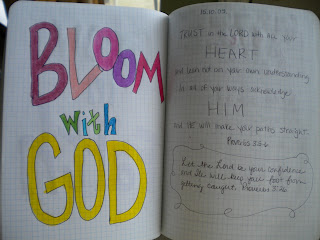 BLOOM
with
GOD
TRUST in the LORD with ALL your
HEART
and lean not on your own understanding
in all of your ways acknowledge
HIM
and HE will make your paths straight.
Proverbs 3:5-6
Let the Lord be your confidence
and He will keep your foot from
getting caught. Proverbs 3:26